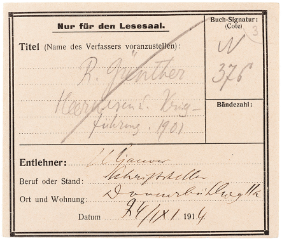 Nur für den Lesesaal.
Buch-Signatur:
(Cote)
N
376
3
Titel (Name des Verfassers voranzustellen):
R. Günther
Heerwesen u. Krieg-
führung. 1901
Bändezahl:
Entlehner:
Beruf oder Stand: Schriftsteller
Ort und Wohnung:
Datum 24/IX 1914